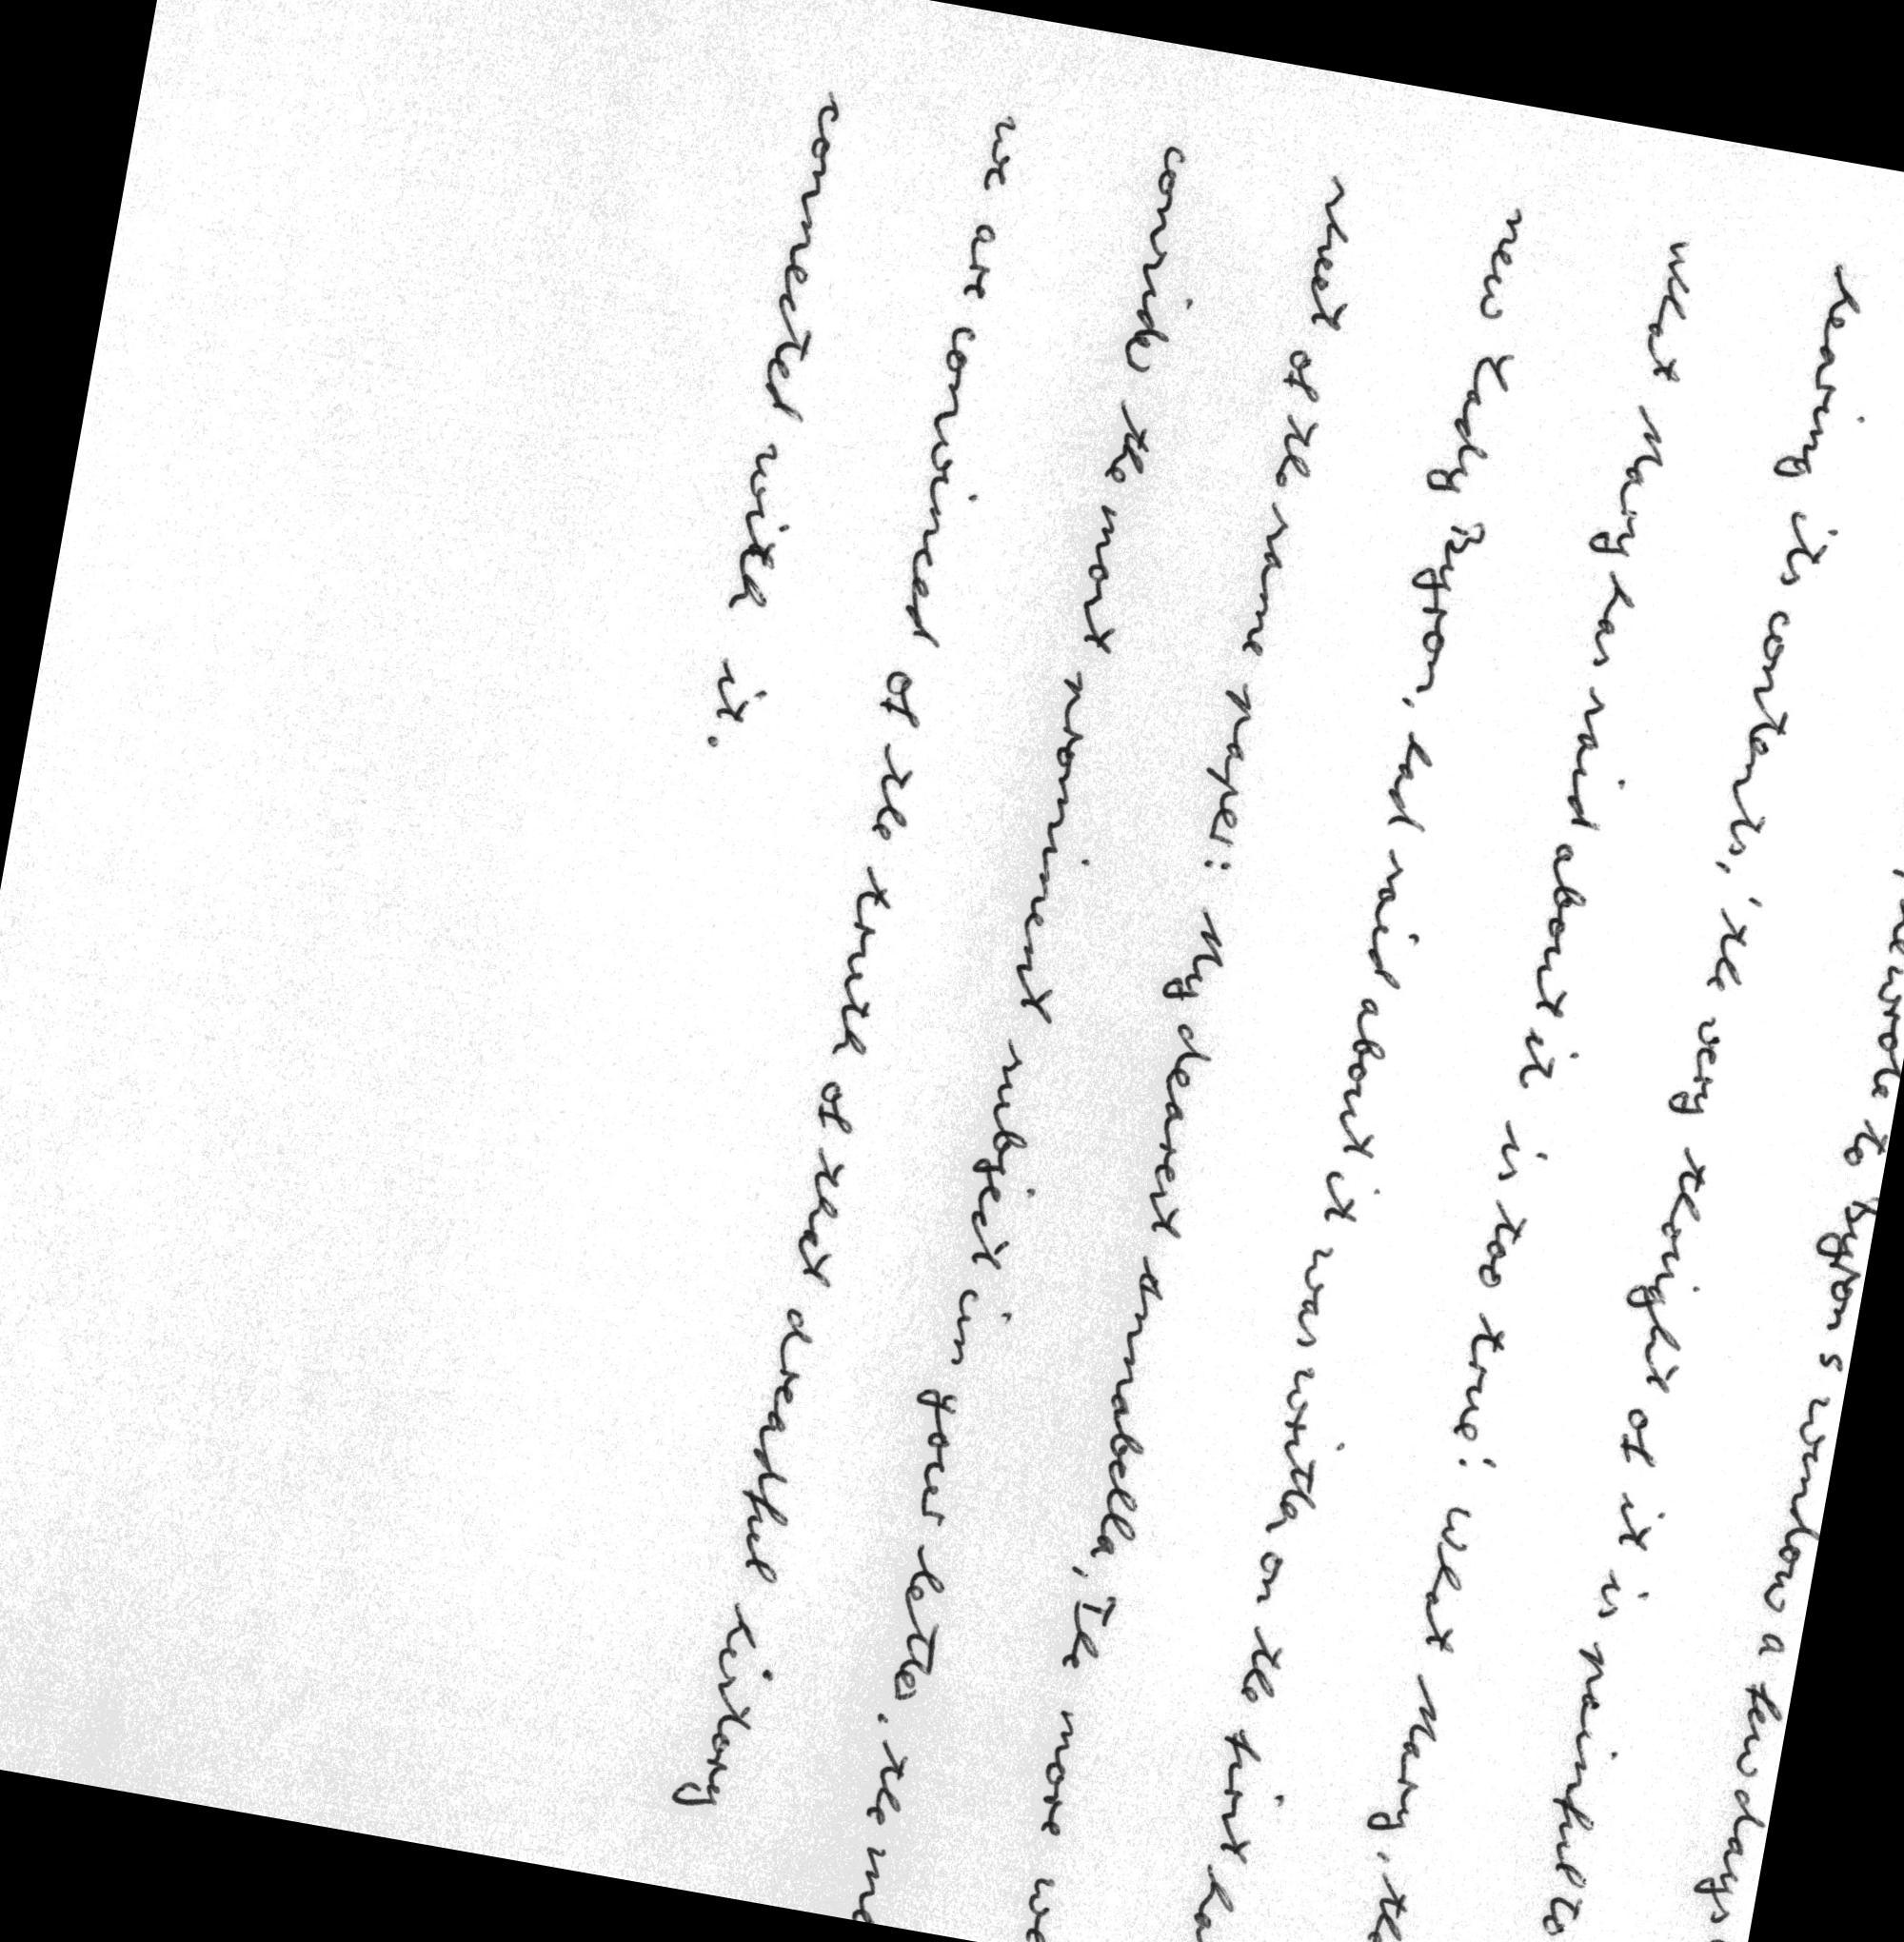 wrote to Byron's window a few days
hearing its contents, 'the very thought of it is painful to
what Mary has said about it is too true: What Mary, the
new Lady Byron, had said about it was written on the first ha
sheet of the same paper: My dearest Annabella, The more we
consider the most prominent subject in your letter, the mo
we are convinced of the truth of that dreadful history
connected with it.